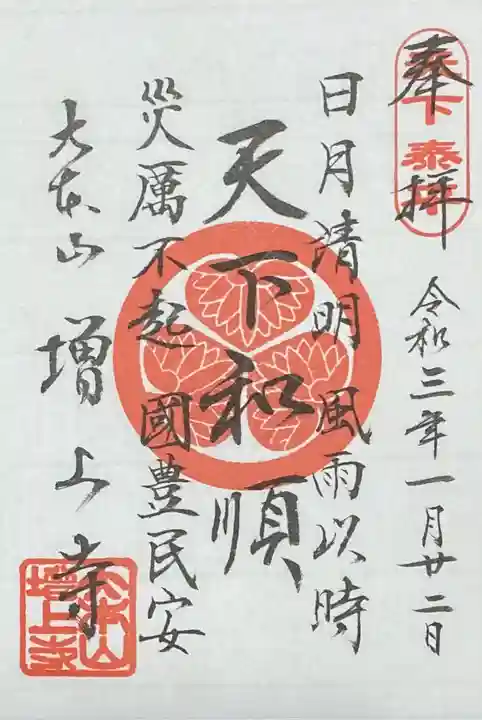 奉拝
天下泰平
令和三年一月廿二日
日月清明 風雨以時
天下和順
災厲不起 國豊民安
大本山 増上寺
大本山
増上寺